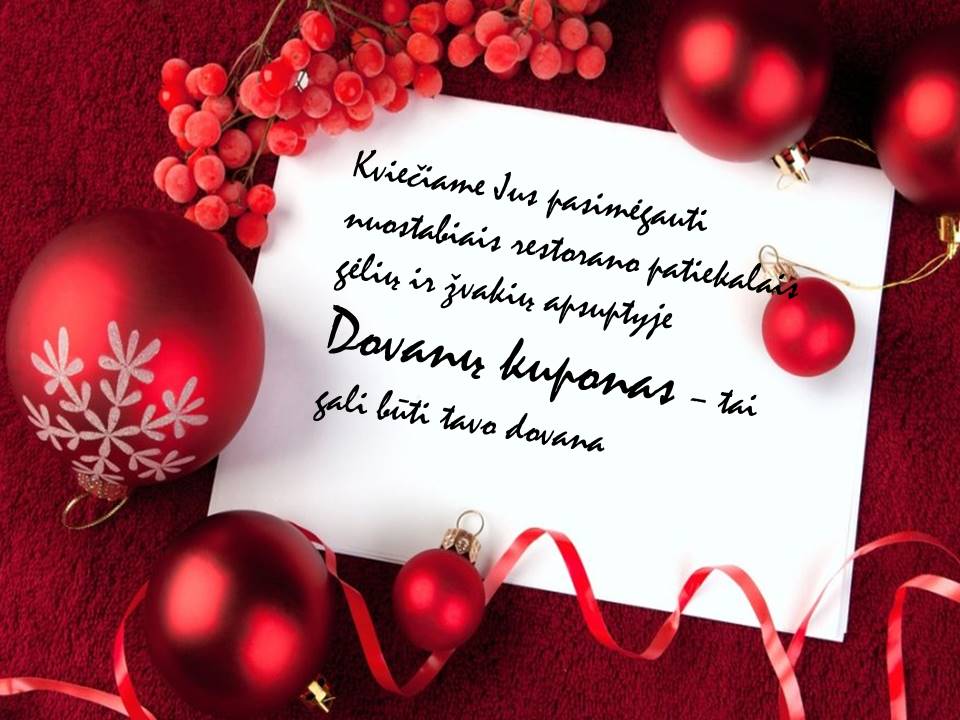 Kviečiame Jus pasimėgauti
nuostabiais restorano patiekalais
gėlių ir žvakių apsuptyje
Dovanų kuponas – tai
gali būti tavo dovana